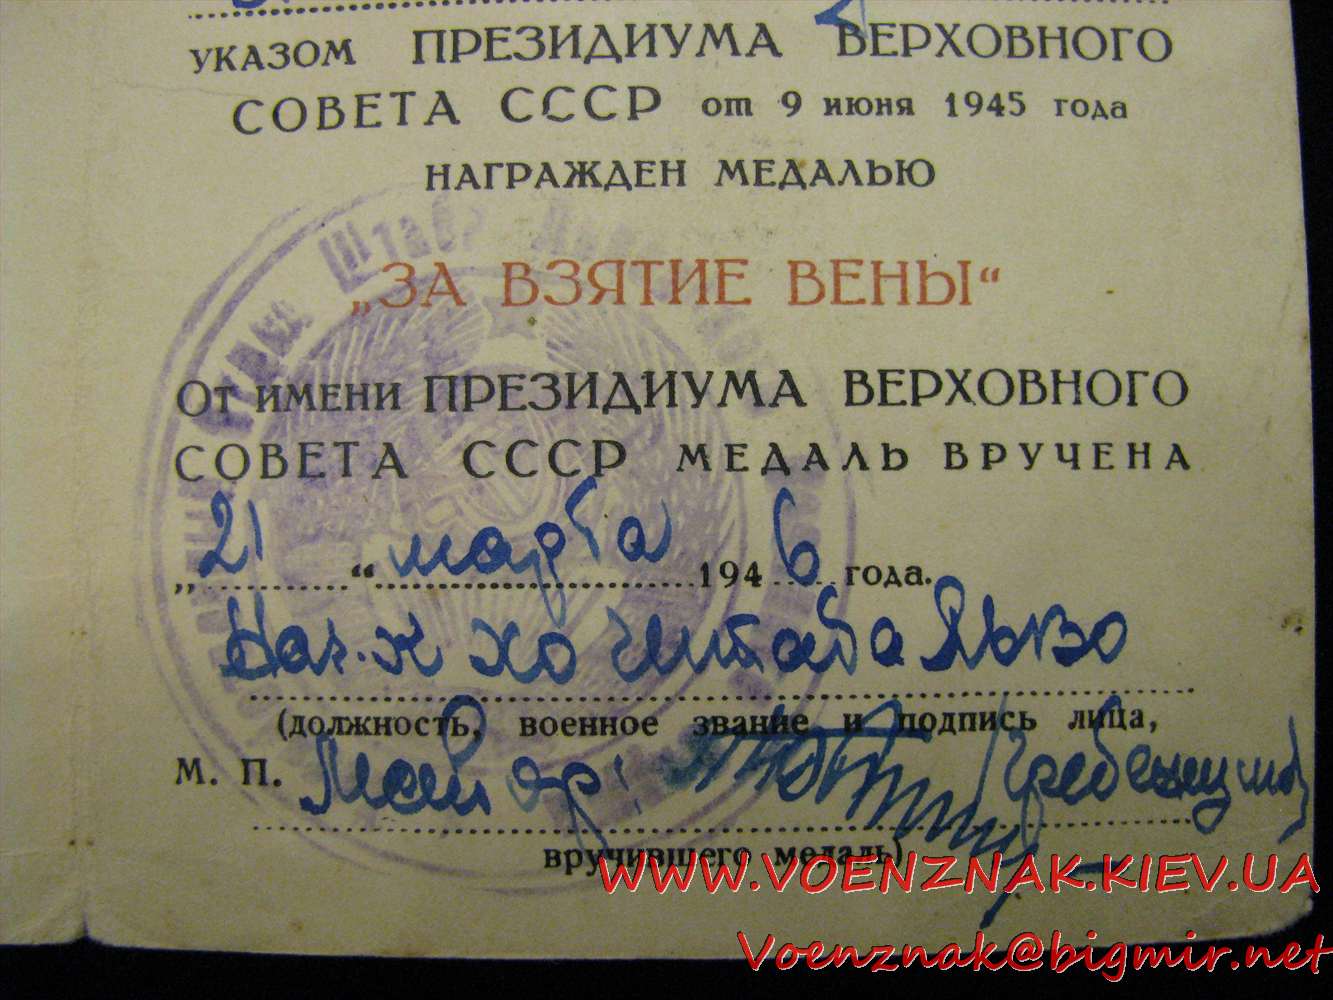 УКАЗОМ ПРЕЗИДИУМА ВЕРХОВНОГО
СОВЕТА СССР от 9 июня 1945 года
НАГРАЖДЕН МЕДАЛЬЮ
„ЗА ВЗЯТИЕ ВЕНЫ“
От имени ПРЕЗИДИУМА ВЕРХОВНОГО
СОВЕТА СССР МЕДАЛЬ ВРУЧЕНА
„21“ марта 1946 года.
Нач-к хо штаба ЛьВО
(должность, военное звание и подпись лица,
М. П. Майор
вручившего медаль)
WWW.VOENZNAK.KIEV.UA
Voenznak@bigmir.net